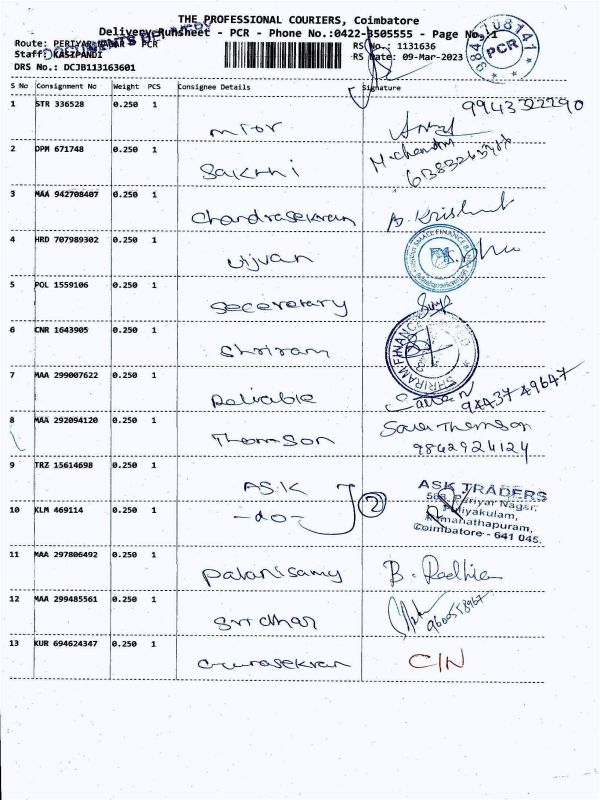 THE PROFESSIONAL COURIERS, Coimbatore
Delivery Runsheet - PCR - Phone No.:0422-3505555 - Page No. 1
Route: PERIYAR NAGAR - PCR
RS No.: 1131636
Staff: KASIPANDI
RS Date: 09-Mar-2023
DRS No.: DCJB113163601
9843108141
PCR
S No Consignment No Weight PCS Consignee Details Signature
1 STR 336528 0.250 1
9943322290
2 DPM 671748 0.250 1 Sakthi
3 MAA 942708407 0.250 1 Chandrasekran
4 HRD 707989302 0.250 1
5 POL 1559106 0.250 1 Seceretary
6 CNR 1643905 0.250 1 Shriram
SHRIRAM FINANCE
7 MAA 299007622 0.250 1 Reliable
94437 49647
8 MAA 292094120 0.250 1 Thomson
9842924124
9 TRZ 15614698 0.250 1 ASK
10 KLM 469114 0.250 1 -do- 2
ASK TRADERS
Periyar Nagar,
Puliyakulam,
Ramanathapuram,
Coimbatore - 641 045.
11 MAA 297806492 0.250 1 Palanisamy
12 MAA 299485561 0.250 1 Sridhar
13 KUR 694624347 0.250 1 C/N